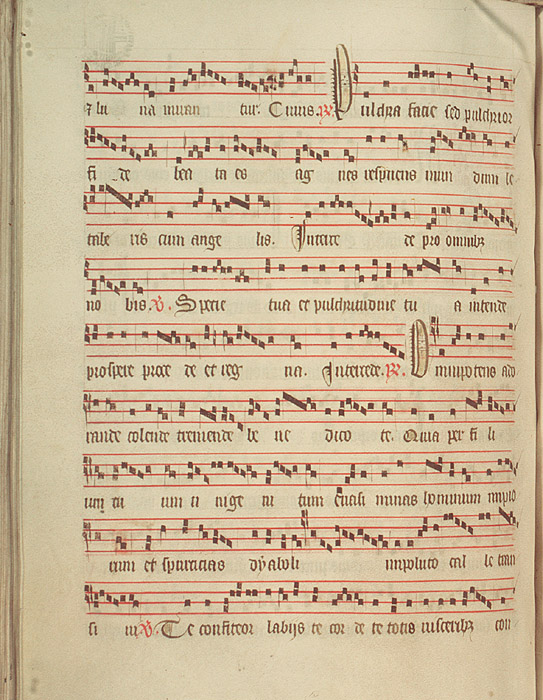 & lu na miran tur. Cuius. R. Pulchra facie sed pulchrior
fi de bea ta es ag nes respuens mun dum le
tabe ris cum ange lis. Interce de pro omnibz
no bis. V. Specie tua et pulchritudine tu a intende
prospere proce de et reg na. Intercede. R. Omnipotens ado
rande colende tremende be ne dico te. Quia per fi li
um tu um uni ge ni tum euasi minas hominum impio
rum et spurcicias dyaboli impoluto cal le tran
si ui V. Te confiteor labijs te cor de te totis visceribz con